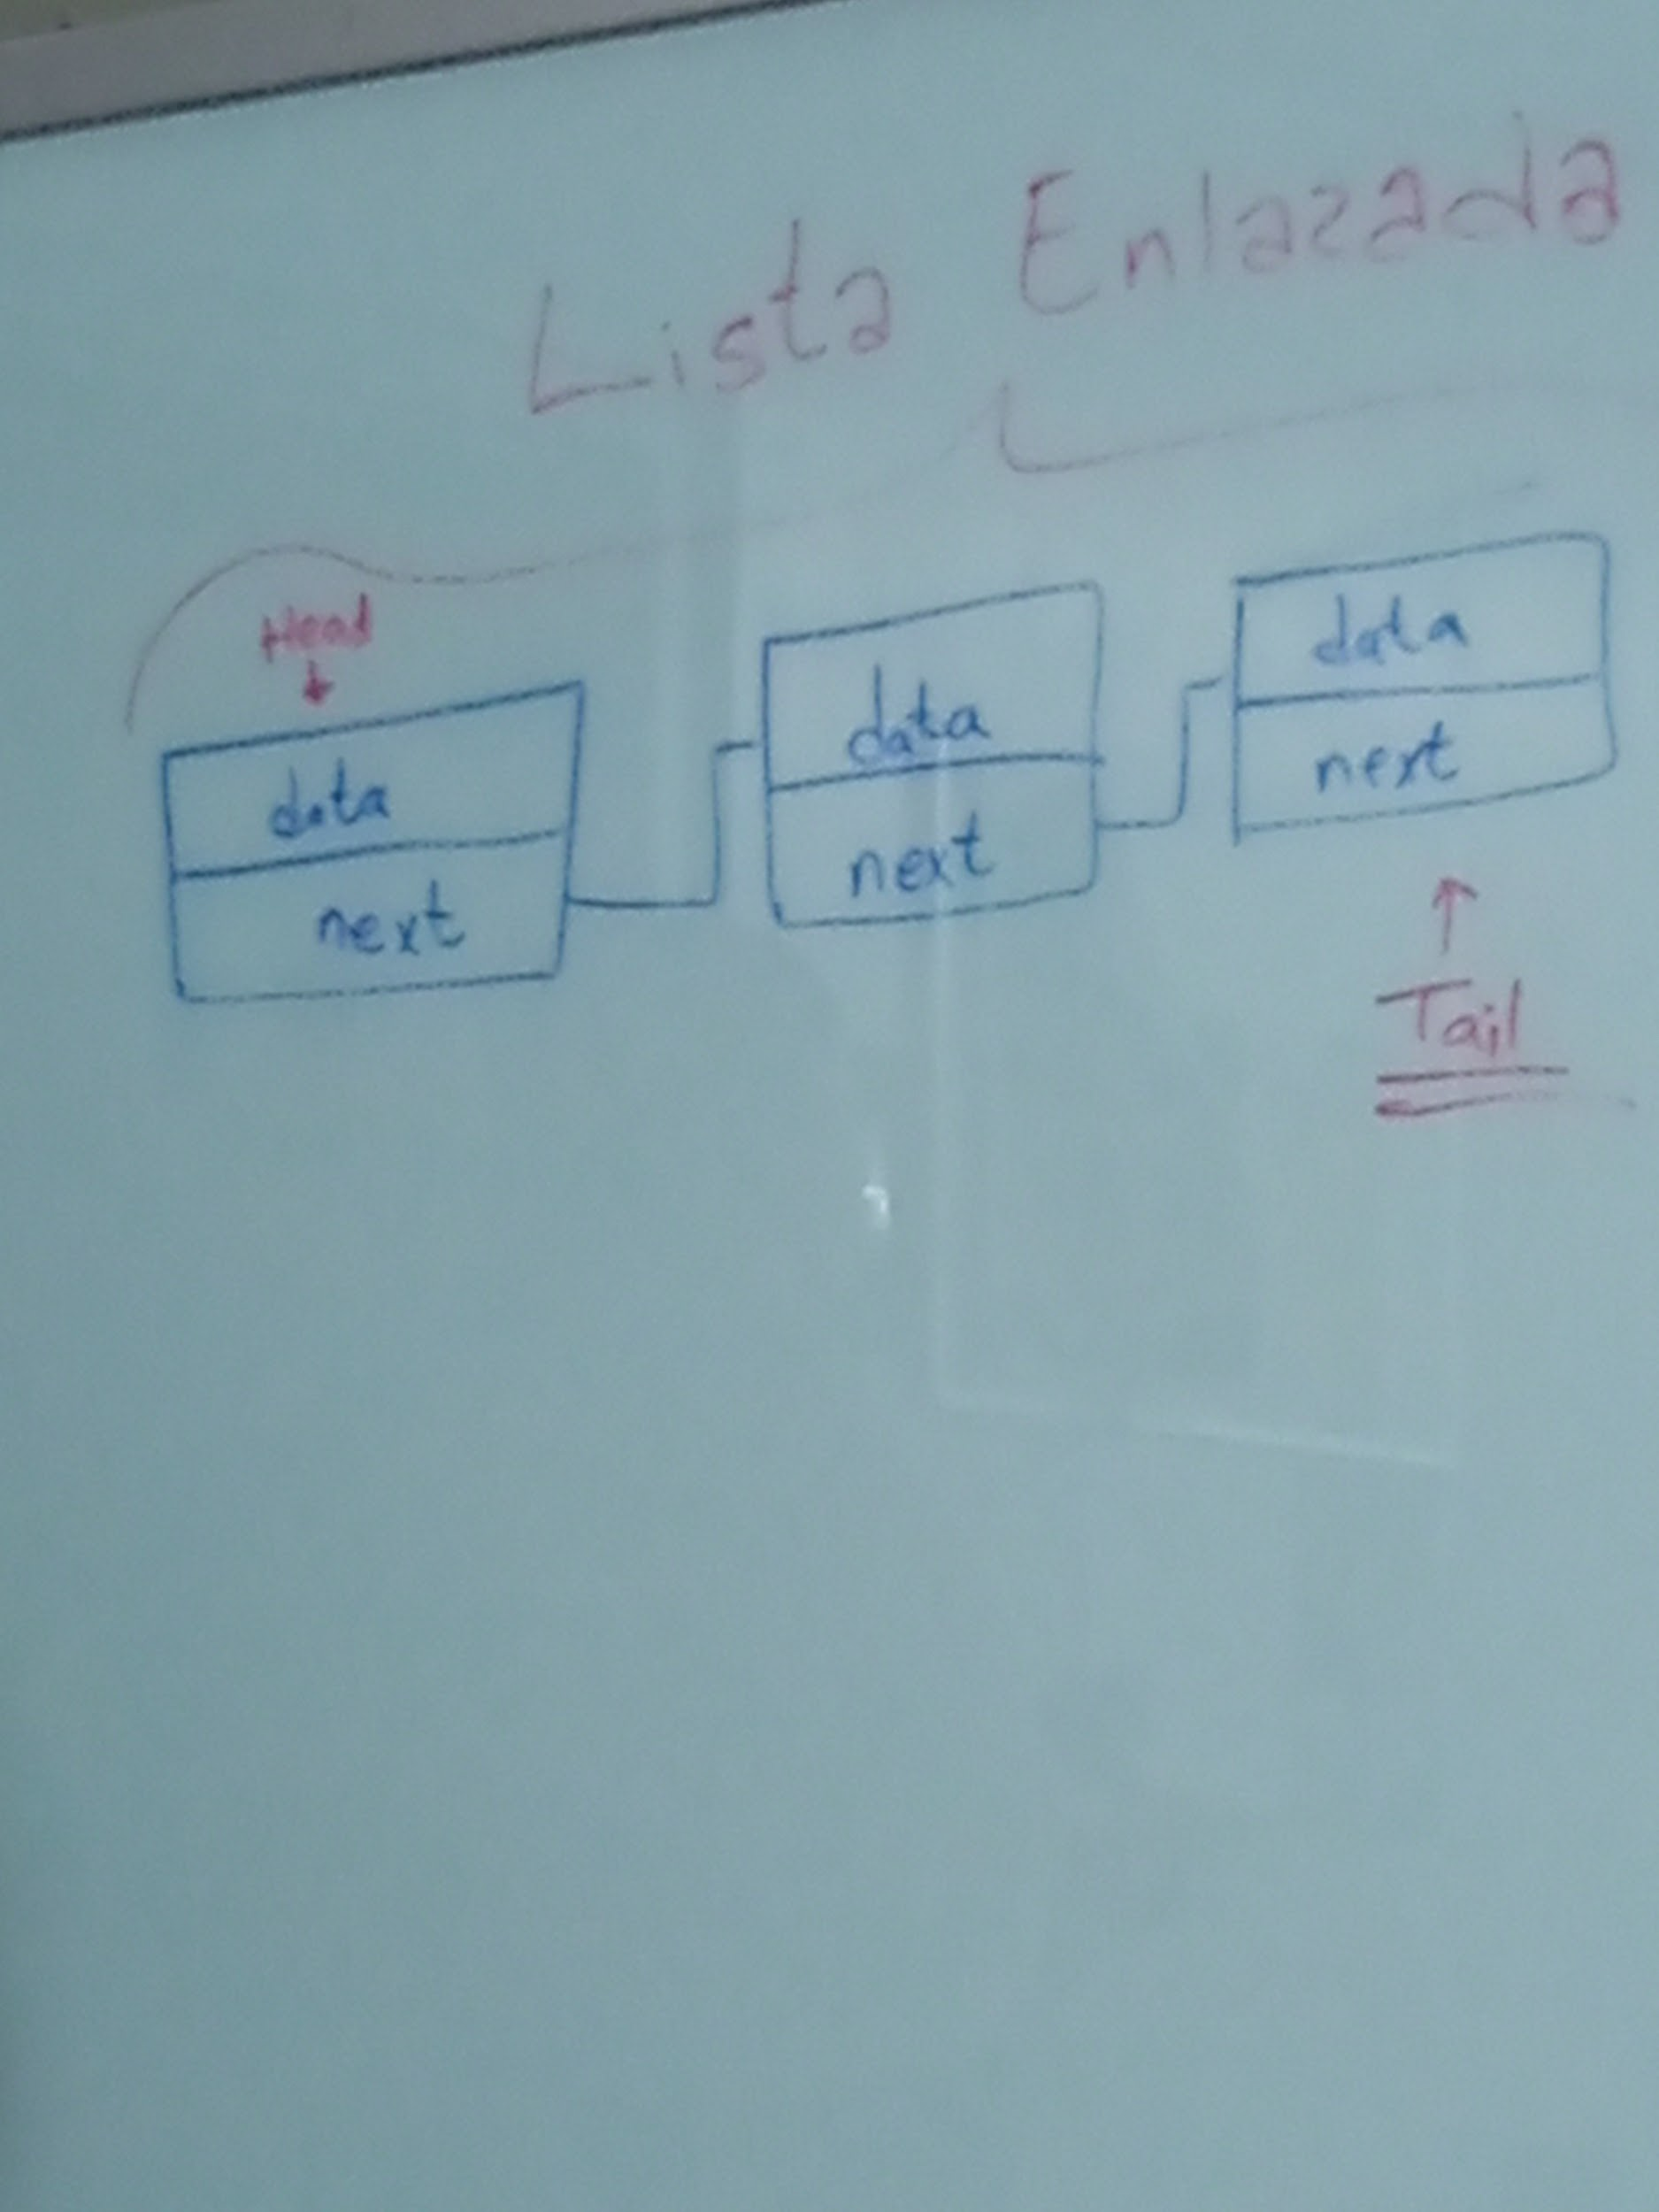 Lista Enlazada
Head
data
next
data
next
data
next
Tail